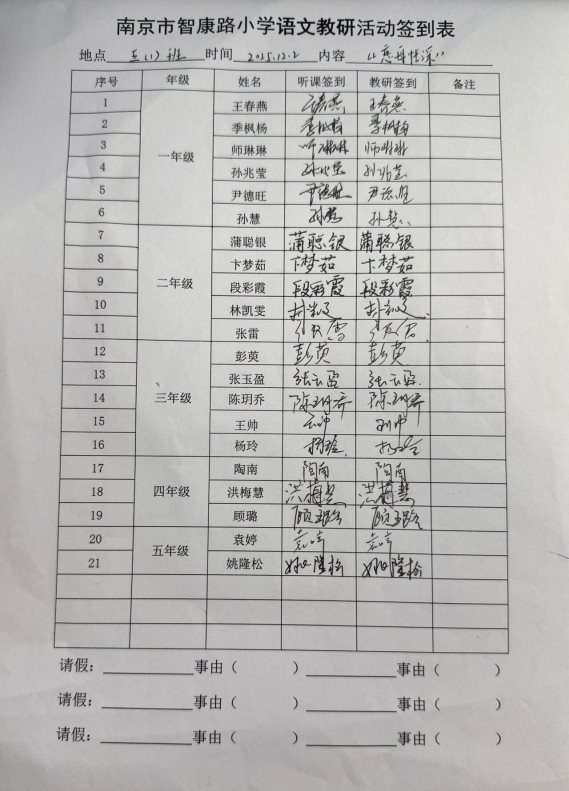 南京市智康路小学语文教研活动签到表
地点 五(1)班 时间 2025.12.2 内容 《慈母情深》
序号 年级 姓名 听课签到 教研签到 备注
1 王春燕 王春燕 王春燕
2 季枫杨 季枫杨 季枫杨
3 师琳琳 师琳琳 师琳琳
4 一年级 孙兆莹 孙兆莹 孙兆莹
5 尹德旺 尹德旺 尹德旺
6 孙慧 孙慧 孙慧
7 蒲聪银 蒲聪银 蒲聪银
8 卞梦茹 卞梦茹 卞梦茹
9 二年级 段彩霞 段彩霞 段彩霞
10 林凯雯 林凯雯 林凯雯
11 张雷 张雷 张雷
12 彭萸 彭萸 彭萸
13 张玉盈 张玉盈 张玉盈
14 三年级 陈玥乔 陈玥乔 陈玥乔
15 王帅 王帅
16 杨玲 杨玲 杨玲
17 陶南 陶南 陶南
18 四年级 洪梅慧 洪梅慧 洪梅慧
19 顾璐 顾璐 顾璐
20 袁婷 袁婷 袁婷
21 五年级 姚隆松 姚隆松 姚隆松
请假: 事由( ) 事由( )
请假: 事由( ) 事由( )
请假: 事由( ) 事由( )